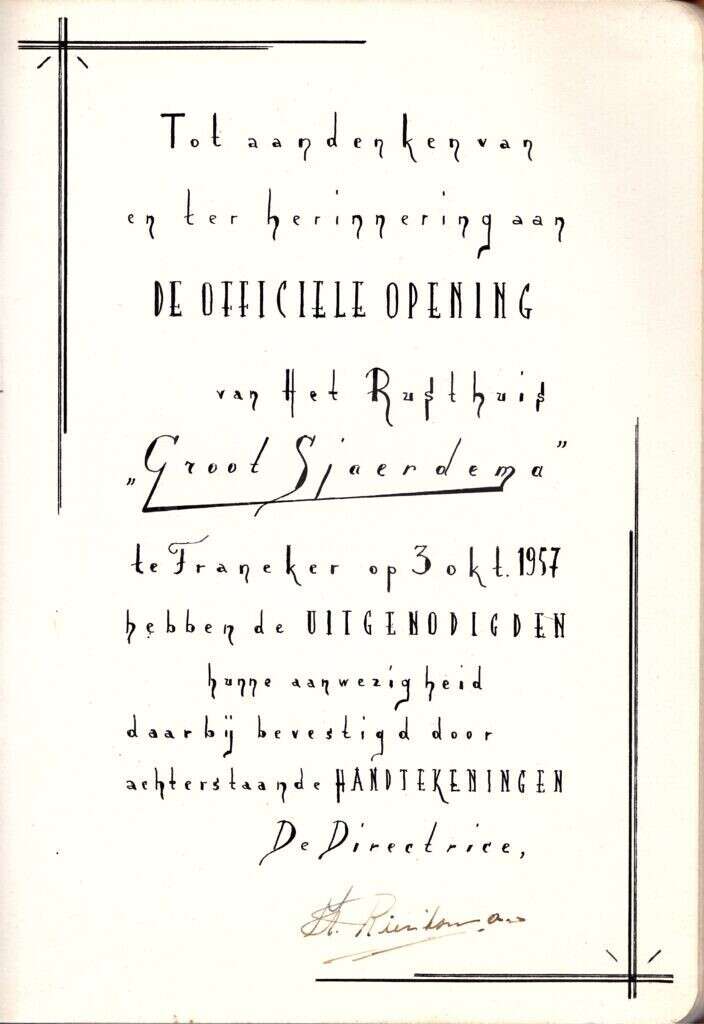 Tot aandenken van
en ter herinnering aan
DE OFFICIELE OPENING
van Het Rusthuis
„Groot Sjaerdema”
te Franeker op 3 okt. 1957
hebben de UITGENODIGDEN
hunne aanwezigheid
daarbij bevestigd door
achterstaande HANDTEKENINGEN
De Directrice,